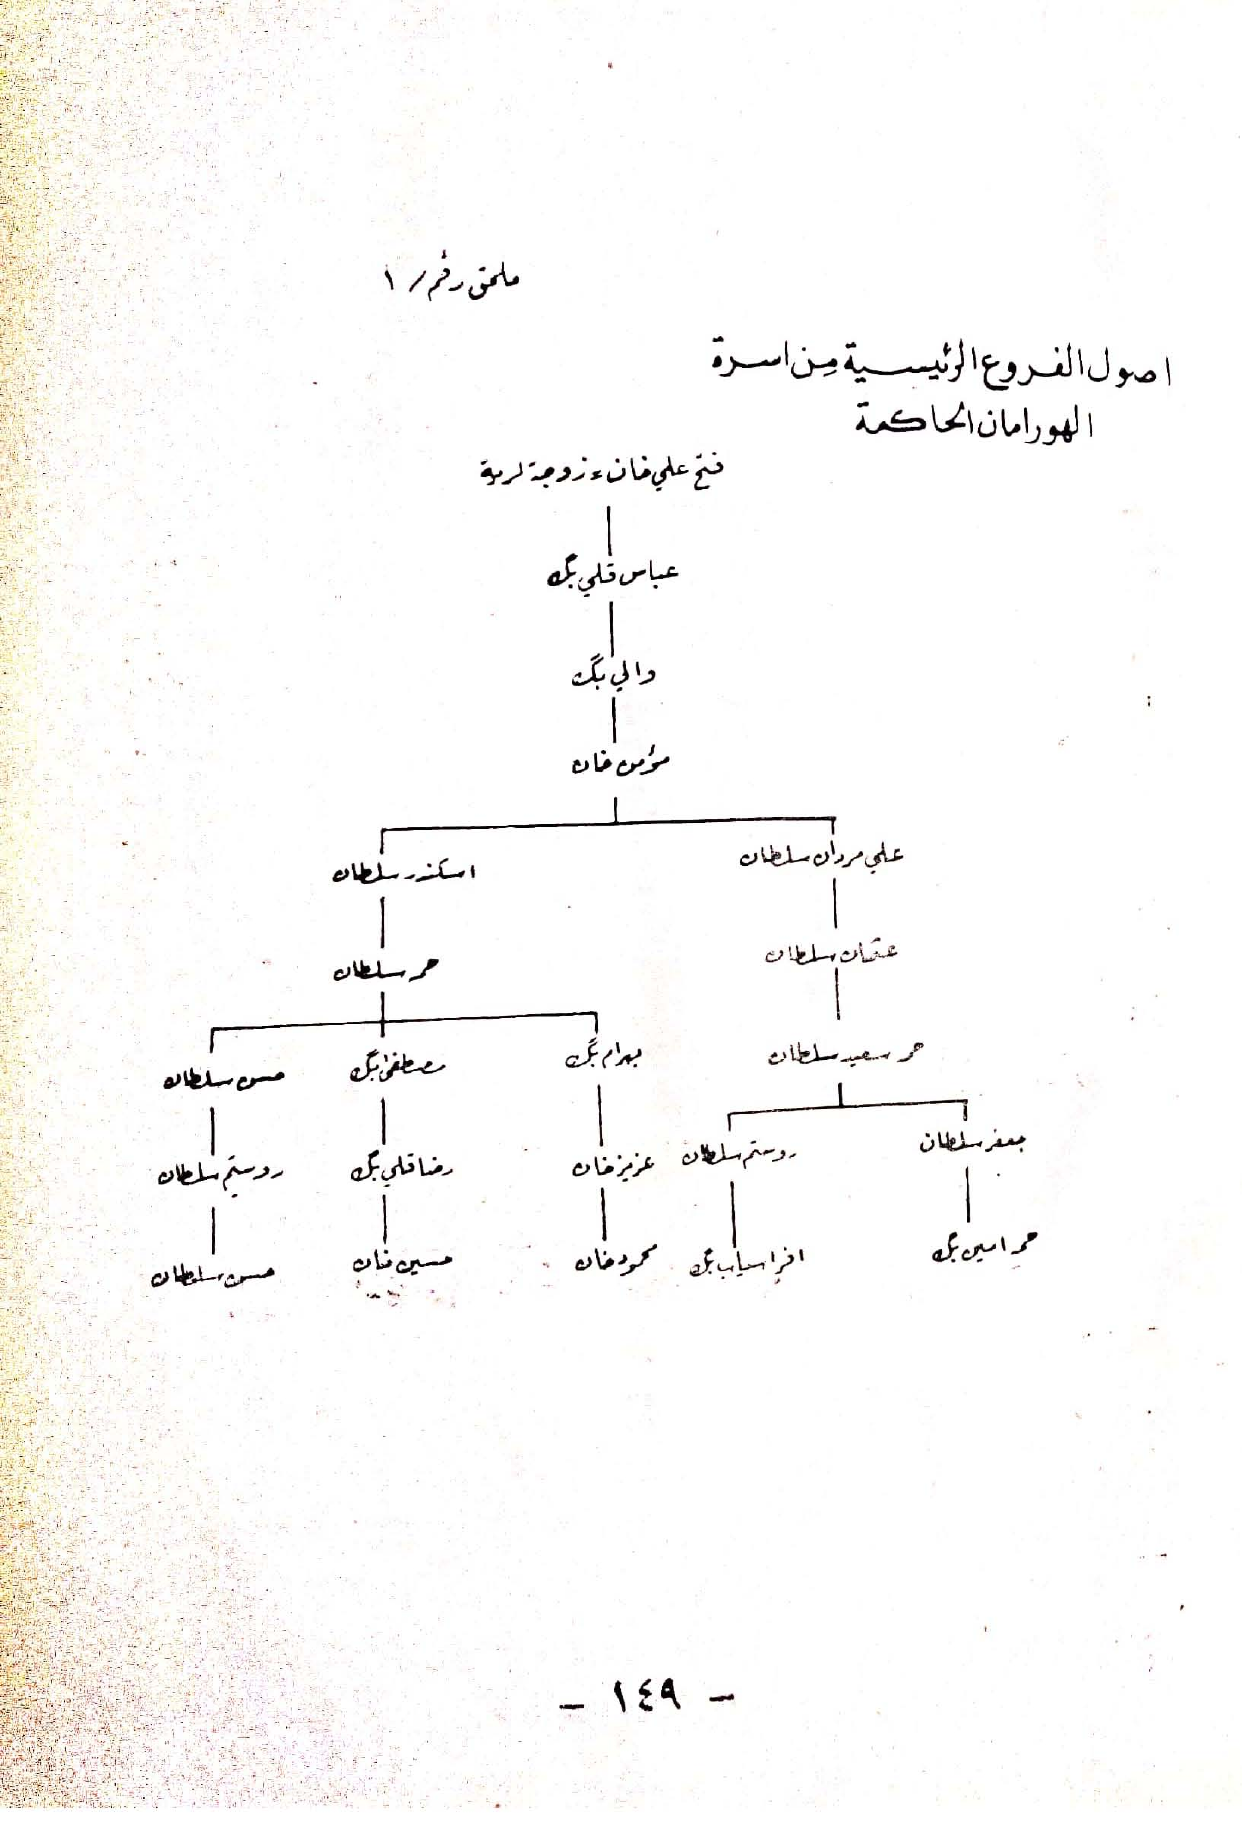 ملحق رقم / ١
اصول الفروع الرئيسية من اسرة
الهورامان الحاكمة
فتح علي خان، زوجة لرية
عباس قلي بگ
والي بگ
مؤمن خان
علي مردان سلطان
اسكندر سلطان
عثمان سلطان
حمه سلطان
حمه سعيد سلطان
بهرام بگ
مصطفى بگ
حسن سلطان
جعفر سلطان
روستم سلطان
عزيز خان
رضا قلي بگ
روستم سلطان
حمه امين بگ
افراسياب بگ
محمود خان
حسين خان
حسن سلطان
- ١٤٩ -